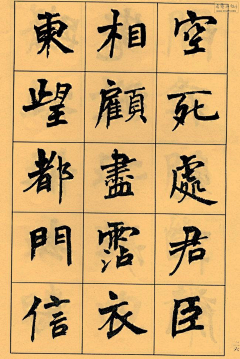 空死處君臣
相顧盡霑衣
東望都門信